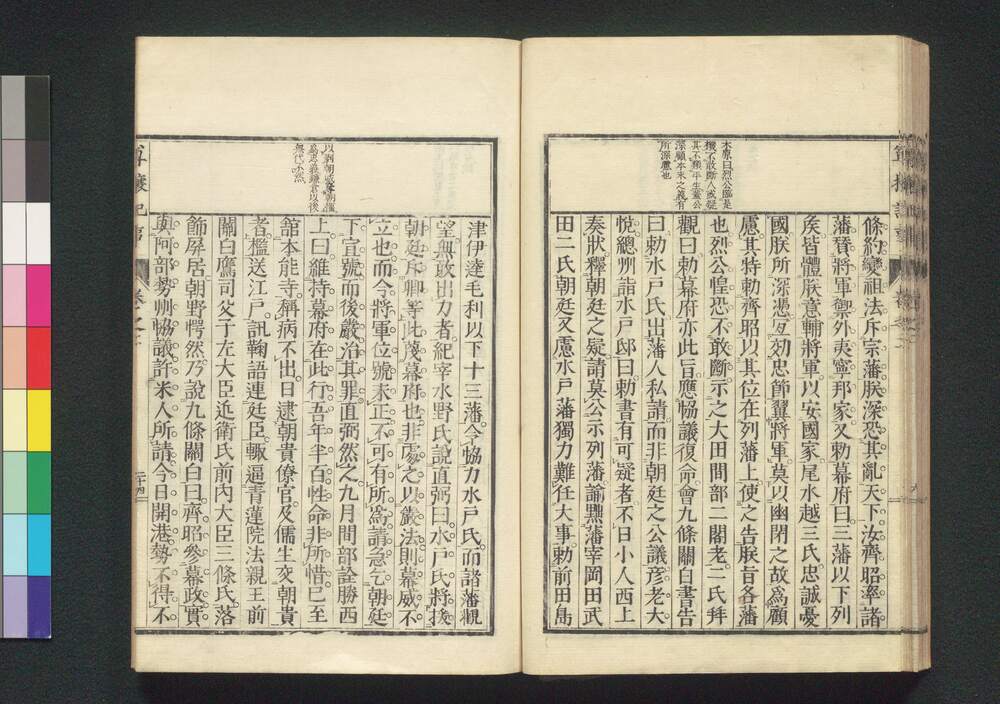 條約變祖法斥宗藩朕深恐其亂天下汝齊昭率諸
藩督將軍禦外夷寧邦家又勅幕府曰三藩以下列
矦皆體朕意輔將軍以安國家尾水越三氏忠誠憂
國朕所深憑互効忠節翼將軍莫以幽閉之故爲顧
慮其特勅齊昭以其位在列藩上使之告朕旨各藩
也烈公惶恐不敢斷示之大田間部二閣老二氏拜
觀曰勅幕府亦此旨應協議復命會九條關白書告
曰勅水戶氏出藩人私請而非朝廷之公議彥老大
悅總州詣水戶邸曰勅書有可疑者不日小人西上
奏狀釋朝廷之疑請莫公示列藩諭黜藩宰岡田武
田二氏朝廷又慮水戶藩獨力難任大事勅前田島
津伊達毛利以下十三藩令協力水戶氏而諸藩觀
望無敢出力者紀宰水野氏說直弼曰水戶氏將援
朝廷斥卿等此蔑幕府也非處之以嚴法則幕威不
立也而今將軍位號未正不可有所爲請急乞朝廷
下宣號而後嚴治其罪直弼然之九月間部詮勝西
上曰維持幕府在此行吾年半百性命非所惜已至
舘本能寺稱病不出日逮朝貴僚官及儒生交朝貴
者檻送江戶訊鞠語連廷臣輙逼青蓮院法親王前
關白鷹司父子左大臣近衛氏前內大臣三條氏落
飾屏居朝野愕然乃說九條關白曰齊昭參幕政實
與阿部勢州協議許米人所請今日開港勢不得不